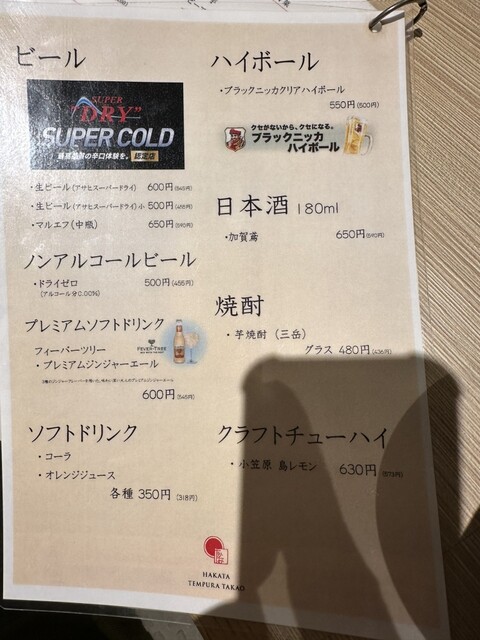 ビール
SUPER
"DRY"
SUPER COLD
最高品質の辛口体験を。 認定店
・生ビール(アサヒスーパードライ) 600円(545円)
・生ビール(アサヒスーパードライ)小 500円(455円)
・マルエフ(中瓶) 650円(590円)
ノンアルコールビール
・ドライゼロ 500円(455円)
(アルコール分0.00%)
プレミアムソフトドリンク
フィーバーツリー
・プレミアムジンジャーエール
FEVER-TREE
600円(545円)
ソフトドリンク
・コーラ
・オレンジジュース
各種 350円(318円)
ハイボール
・ブラックニッカクリアハイボール
550円(500円)
クセがないから、クセになる。
ブラックニッカ
ハイボール
日本酒 180ml
・加賀鳶 650円(590円)
焼酎
・芋焼酎 (三岳)
グラス 480円(436円)
クラフトチューハイ
・小笠原 島レモン 630円(573円)
HAKATA
TEMPURA TAKAO